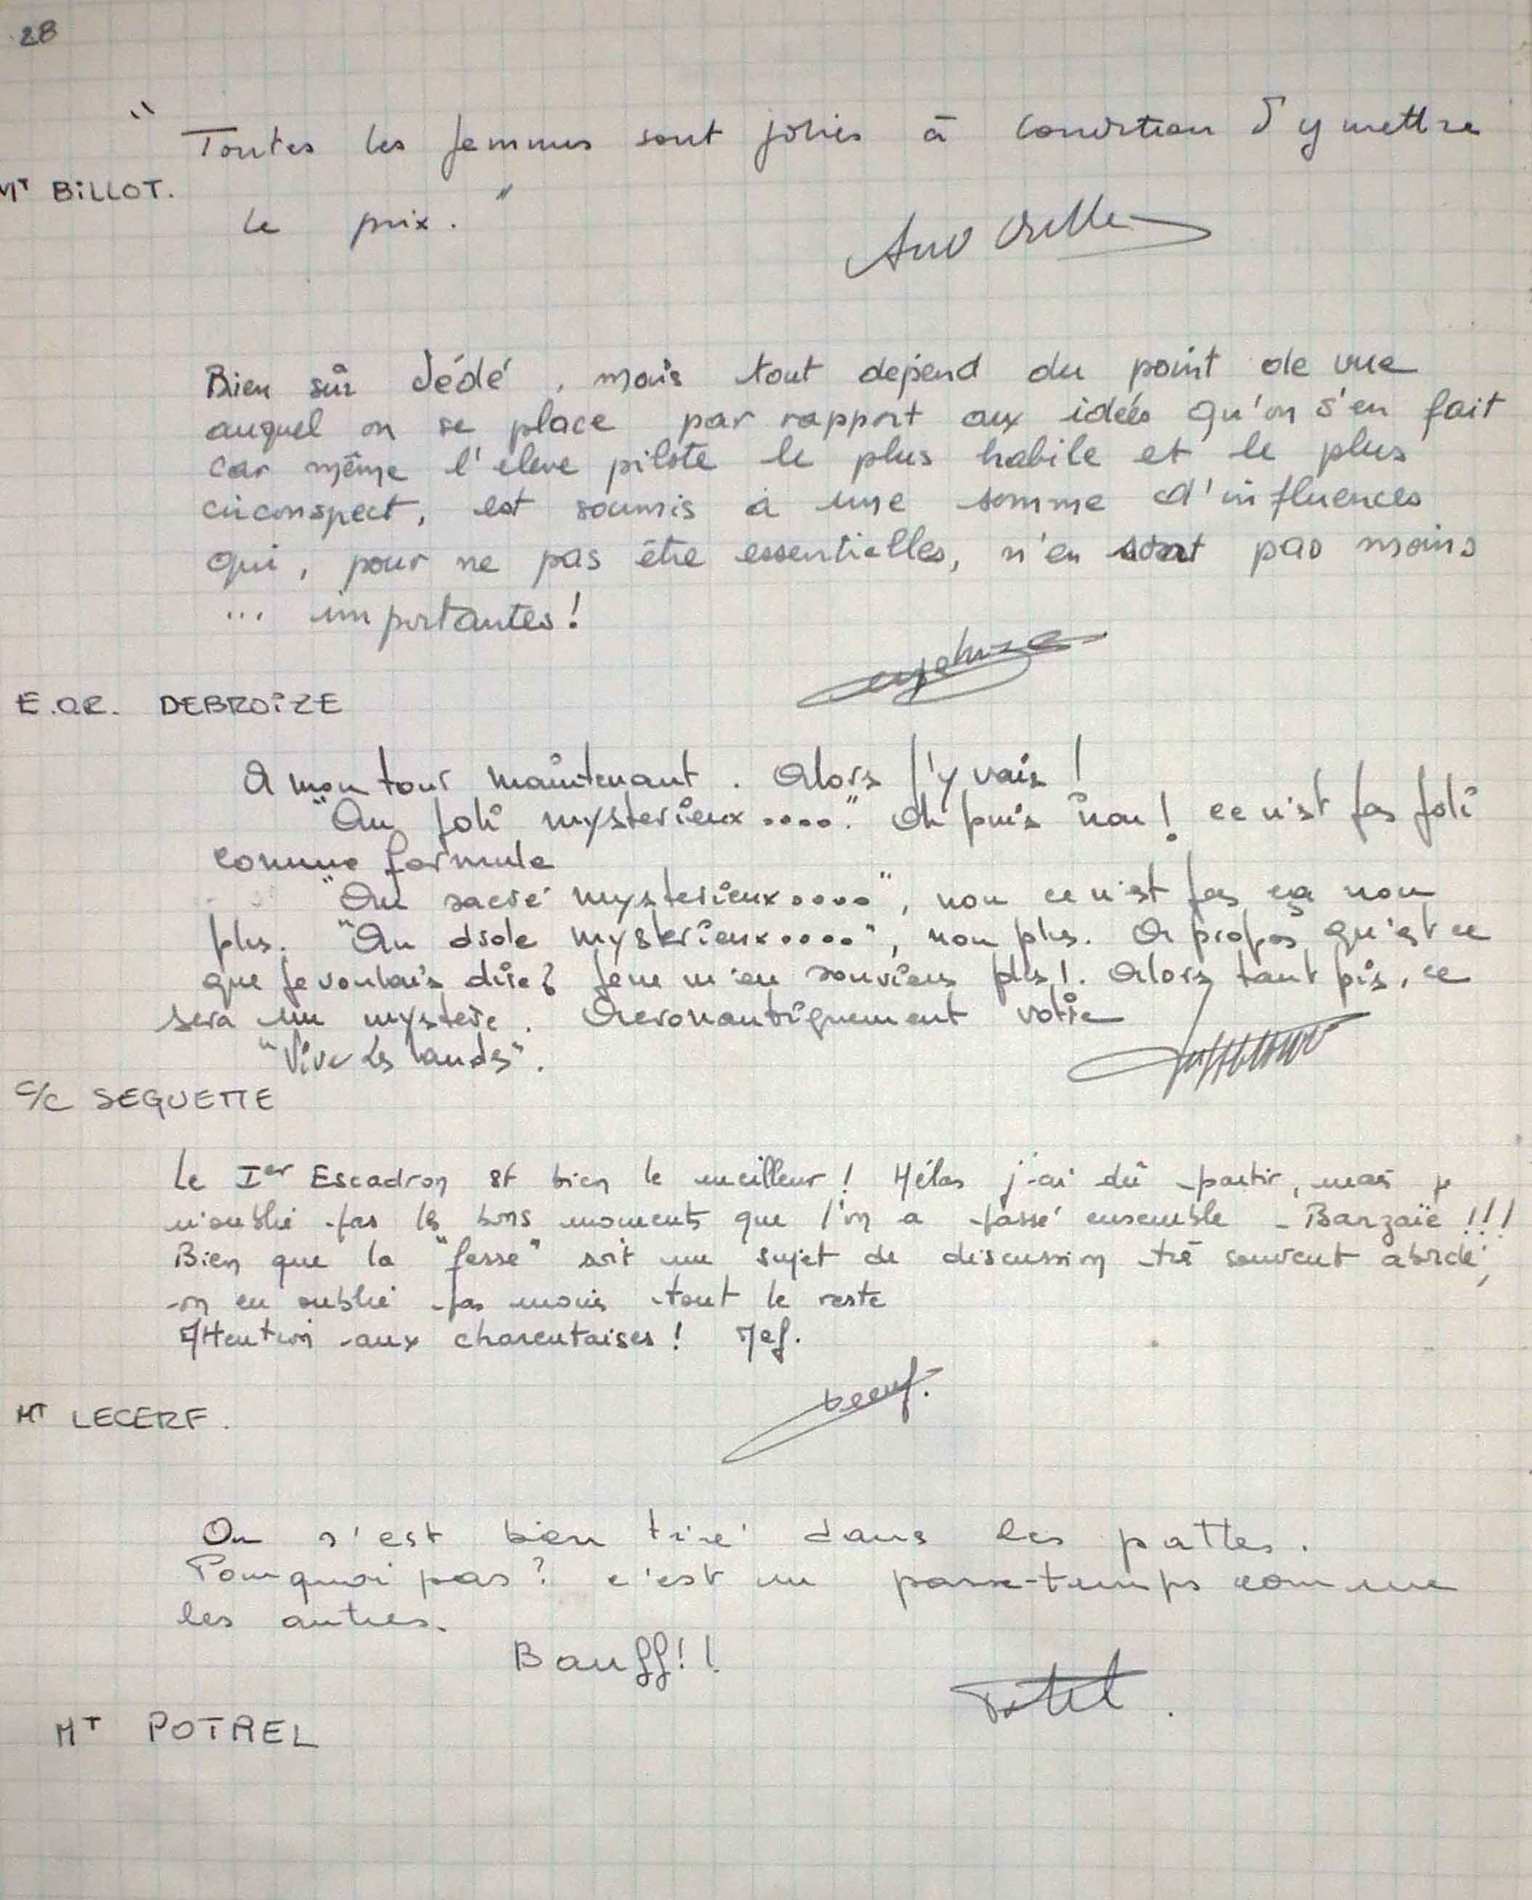 28
" Toutes les femmes sont jolies à condition d'y mettre
MT BILLOT.
le prix. "
Bien sûr Dédé, mais tout dépend du point de vue
auquel on se place par rapport aux idées qu'on s'en fait
car même l'élève pilote le plus habile et le plus
circonspect, est soumis à une somme d'influences
qui, pour ne pas être essentielles, n'en sont pas moins
... importantes!
E.O.R. DEBROIZE
A mon tour maintenant. Alors j'y vais!
"Au joli mysterieux...." Oh puis non! ce n'est pas joli
comme formule
"Au sacré mysterieux....", non ce n'est pas ça non
plus. "Au drole mysterieux....", non plus. A propos qu'est ce
que je voulais dire? Je ne m'en souviens plus!. Alors tant pis, ce
sera un mystere. Aeronautiquement votre
"Vive les Landes".
C/C SEGUETTE
Le Ier Escadron est bien le meilleur! Hélas j'ai dû partir, mais je
n'oublie pas les bons moments que l'on a passé ensemble - Banzaïe!!!
Bien que la "fesse" soit un sujet de discussion très souvent abordé,
on en oublie pas moins tout le reste
Attention aux charentaises! Jef.
MT LECERF.
On s'est bien tiré dans les pattes.
Pourquoi pas? c'est un passe-temps comme
les autres.
Bauff!!
MT POTREL